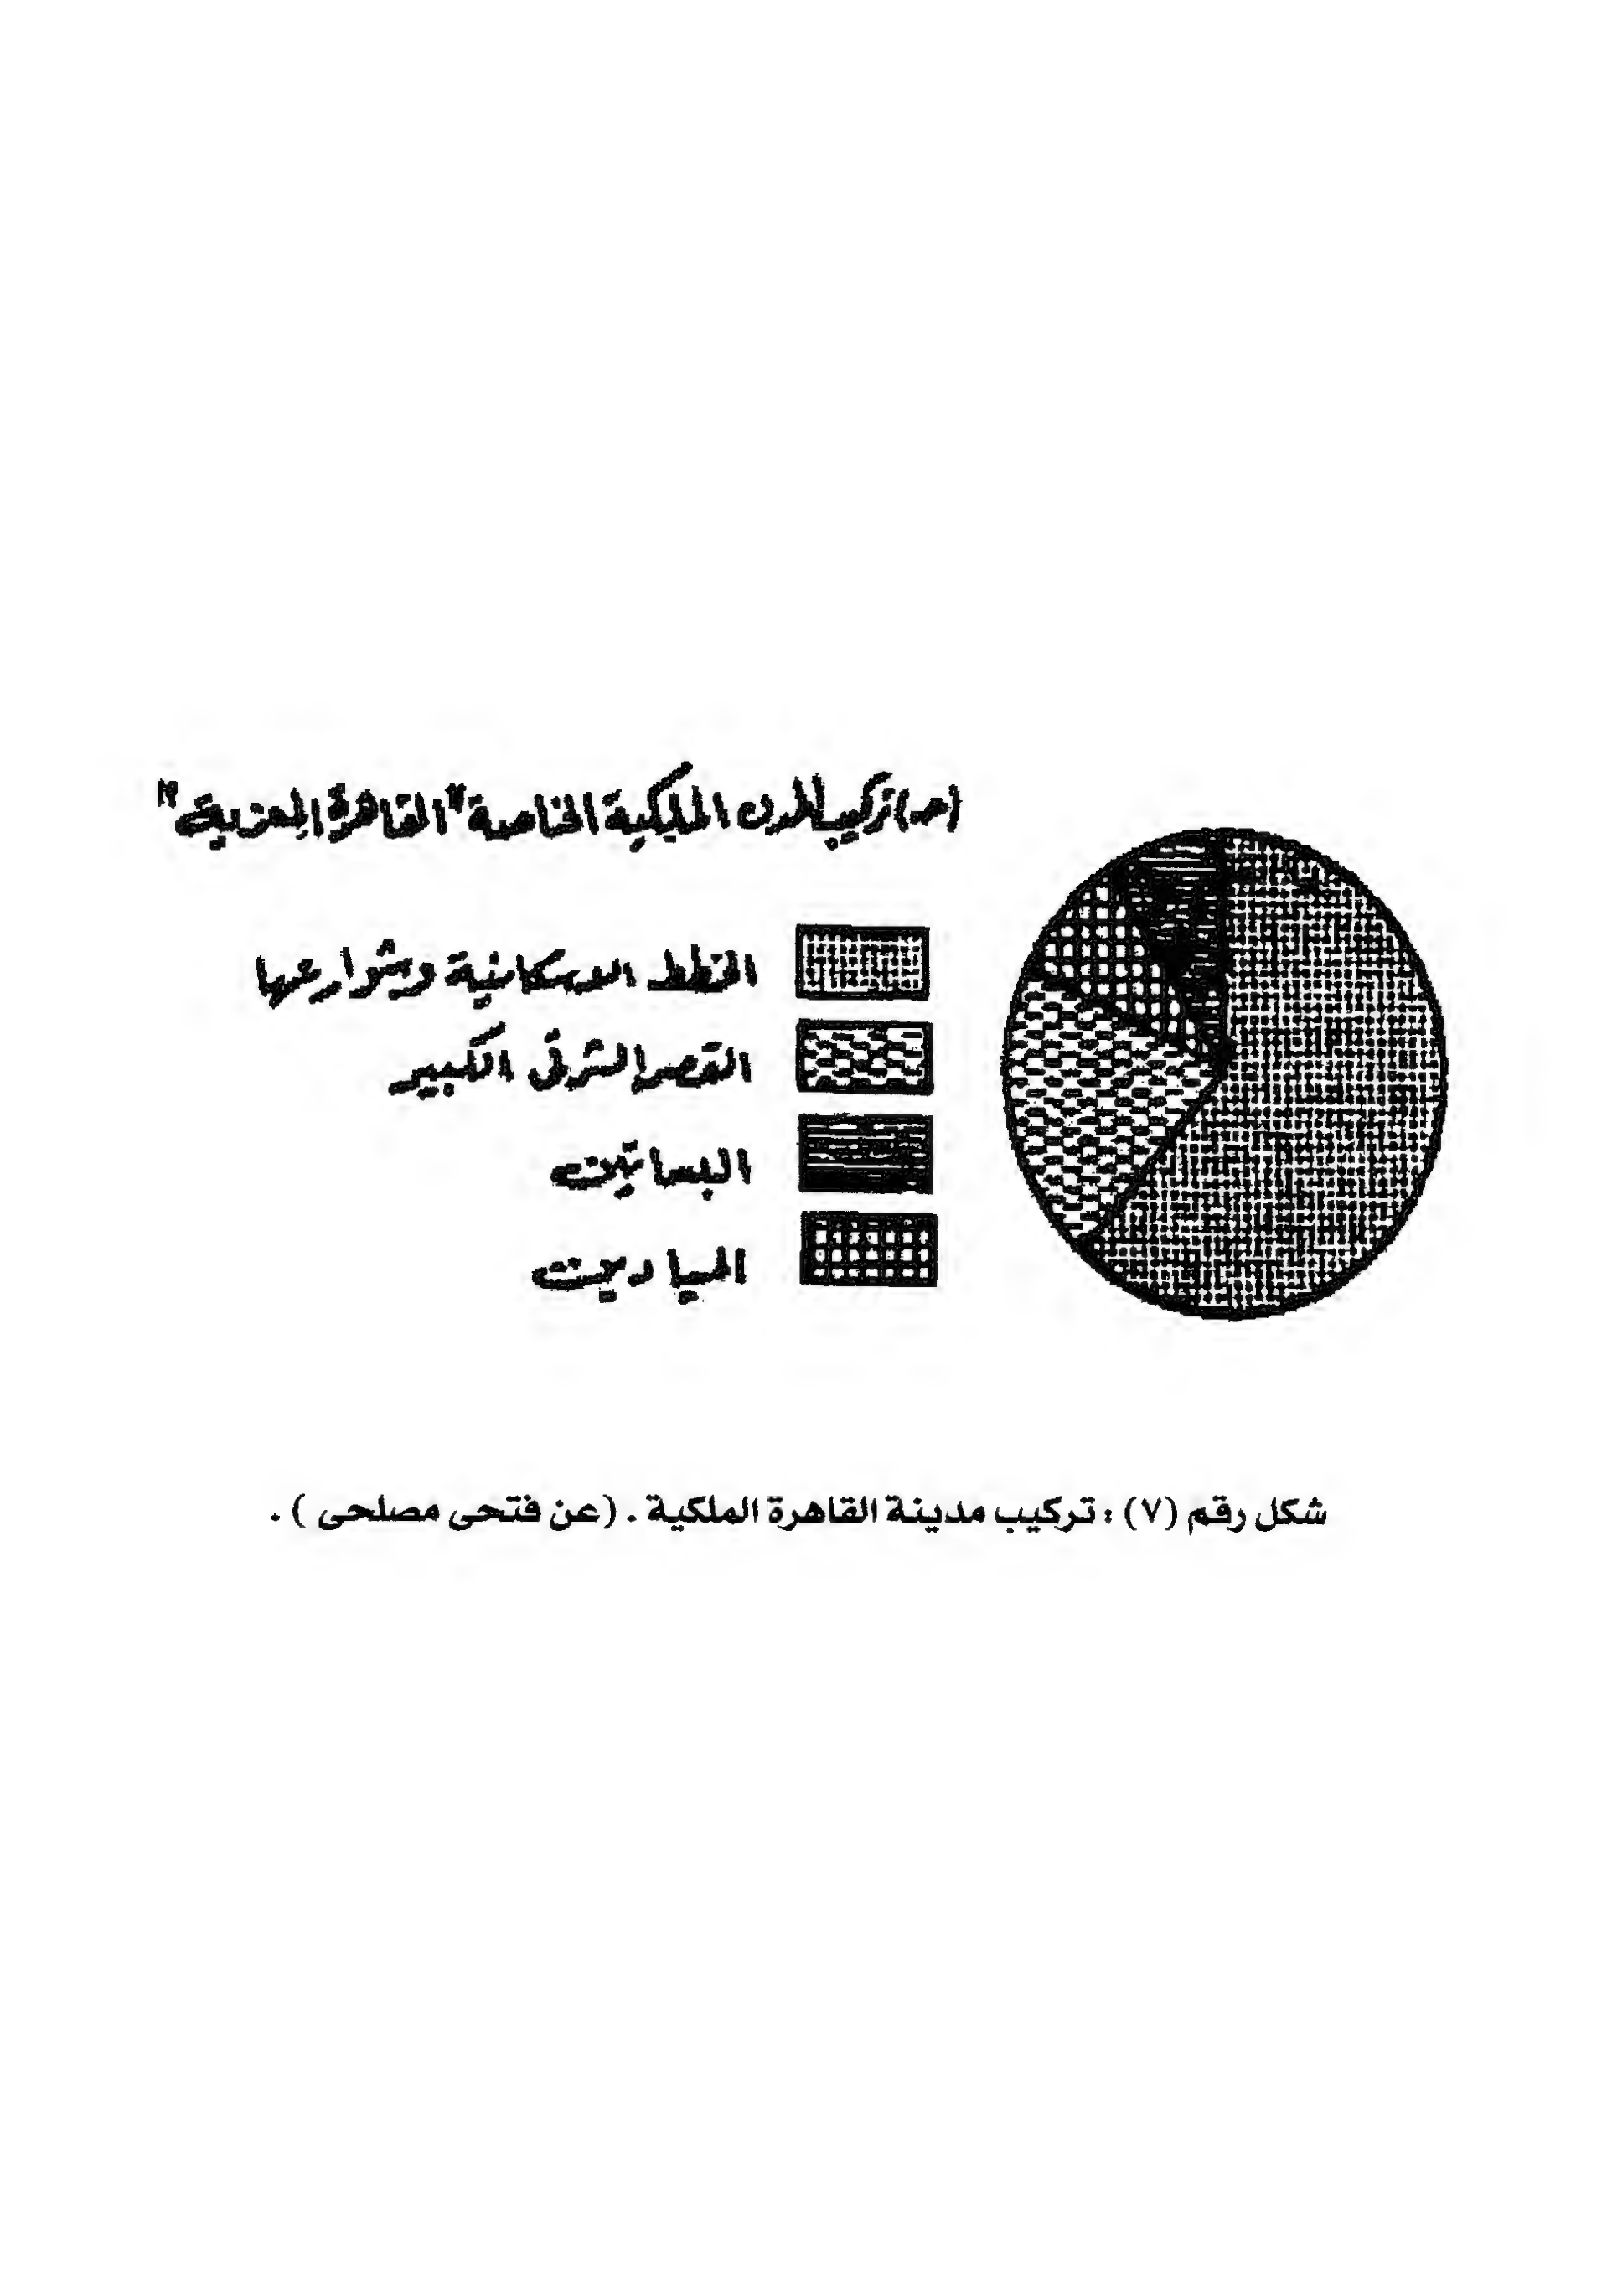 (حـ) تركيب المدن الملكية الخاصة "القاهرة المعزية"
الخطط الاسكانية وشوارعها
القصر الشرقى الكبير
البساتين
الميادين
شكل رقم (٧) : تركيب مدينة القاهرة الملكية . (عن فتحى مصلحى ) .